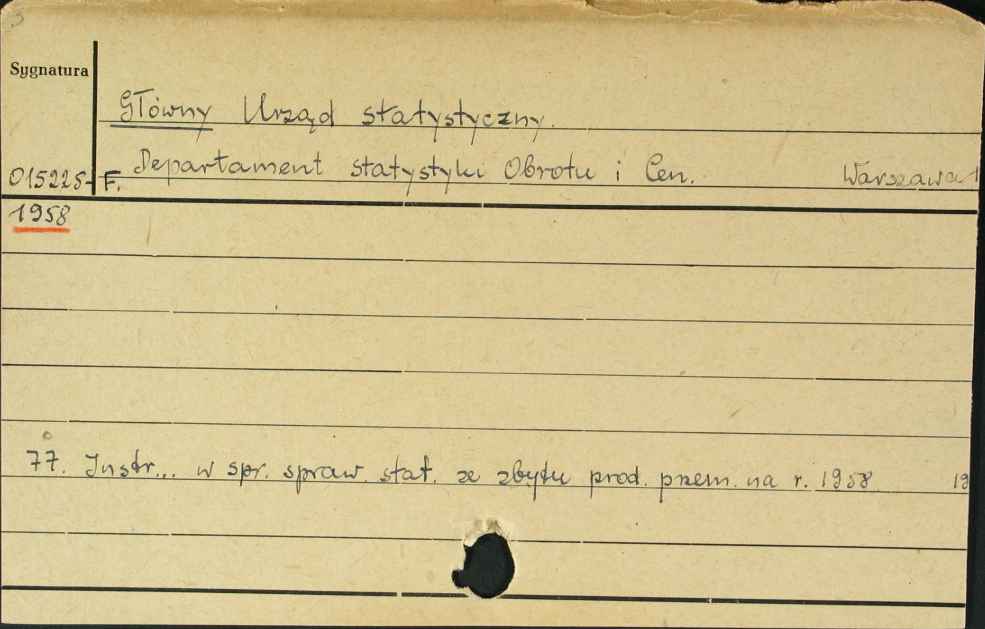 Sygnatura
Główny Urząd statystyczny.
015225- F. Departament statystyki Obrotu i Cen. Warszawa 1
1958
77. Instr... w spr. spraw. stat. ze zbytu prod. przem. na r. 1958 19